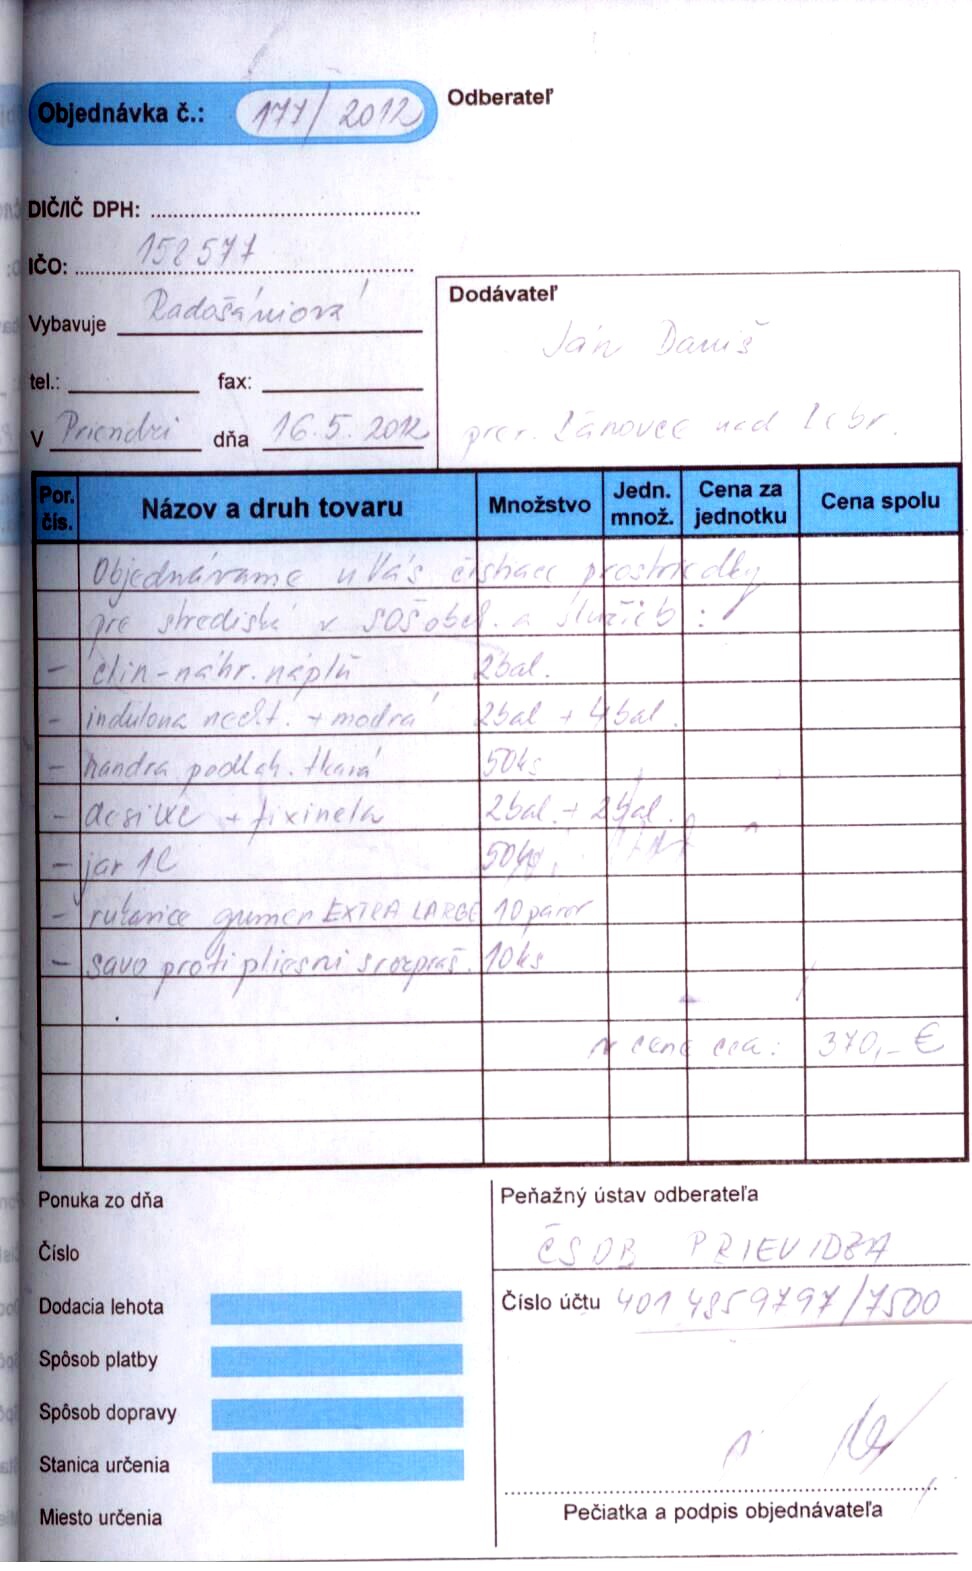 Objednávka č.: 177/2012
Odberateľ
DIČ/IČ DPH:
IČO: 158577
Vybavuje Radošániová
tel.: fax:
V dňa 16.5.2012
Dodávateľ
Ján Daniš
nad
Por. čís. Názov a druh tovaru Množstvo Jedn. množ. Cena za jednotku Cena spolu
Objednávame u Vás čistiace prostriedky
pre strediská v SOŠ obch. a služieb:
- clin - náhr. náplň 2bal.
- indulona necht. + modrá 2bal + 4bal.
- handra podlah. tkaná 50ks
- + fixinela 2bal. + 2bal.
- jar 1l
- gumen EXTRA LARGE 10párov
- savo proti pliesni s rozpraš. 10ks
v cene cca: 370,- €
Ponuka zo dňa
Číslo
Dodacia lehota
Spôsob platby
Spôsob dopravy
Stanica určenia
Miesto určenia
Peňažný ústav odberateľa
ČSOB PRIEVIDZA
Číslo účtu 4014859797/7500
Pečiatka a podpis objednávateľa